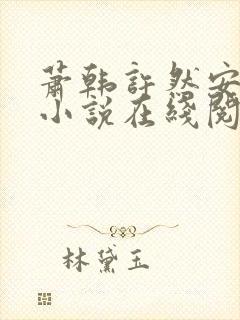 萧韩许然安
小说在线阅
林黛玉